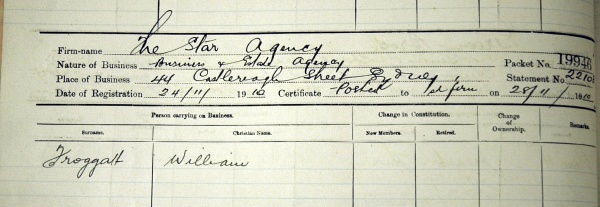 Firm-name The Star Agency
Nature of Business Business & Estate Agency Packet No. 19946
Place of Business 44 Castlereagh Street Sydney Statement No. 22108
Date of Registration 24/11/ 1910 Certificate Posted to firm on 28/11/ 1910
Person carrying on Business. Change in Constitution. Change of Ownership. Remarks.
Surname. Christian Name. New Members. Retired.
Froggatt William